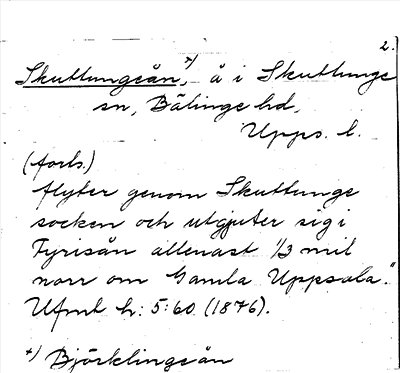 2.
Skuttungeån,*) å i Skuttunge
sn, Bälinge hd,
Upps. l.
(forts.)
flyter genom Skuttunge
socken och utgjuter sig i
Fyrisån allenast 1/3 mil
norr om Gamla Uppsala."
Ufmt h: 5:60 (1876).
*) Björklingeån